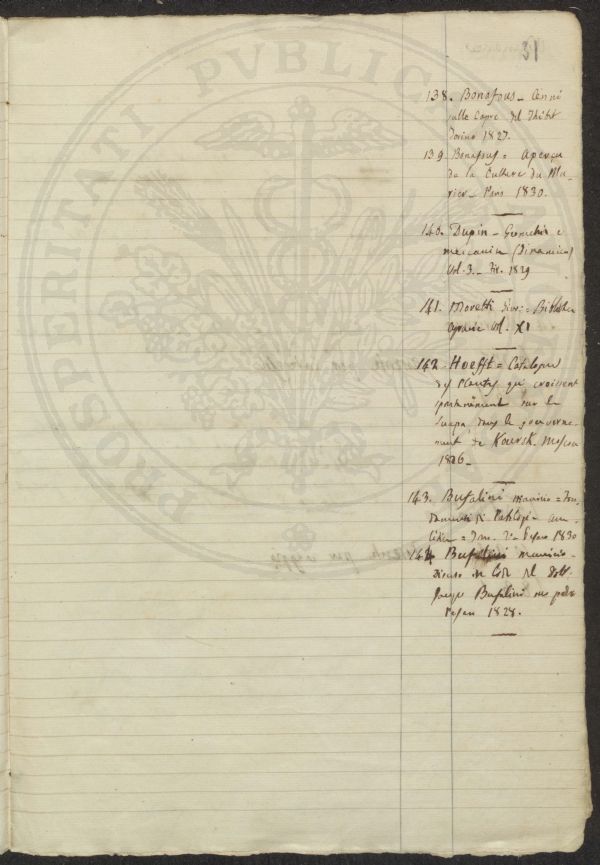 31
138. Bonafous - Cenni
sulle Capre del Thibet
Torino 1827.
139 Bonafous = Aperçu
de la Culture du Mu-
rier - Paris 1830.
140. Dupin - Geometria e
meccanica (Dinamica)
Vol. 3. - Fir. 1829
141. Moretti = Biblioteca
Agraria Vol. XI
142. Hoefft = Catalogue
des Plantes qui croissent
spontanément sur le
dans le gouverne-
ment de Koursk. Moscou
1826 -
143. Bufalini Maurizio = Fon-
damenti di Patologia ana-
litica = Pesaro 1830
144 Bufalini Maurizio -
Discorso in lode del Dott.
Bufalini suo padre
Pesaro 1828.
PROSPERITATI PVBLICAE